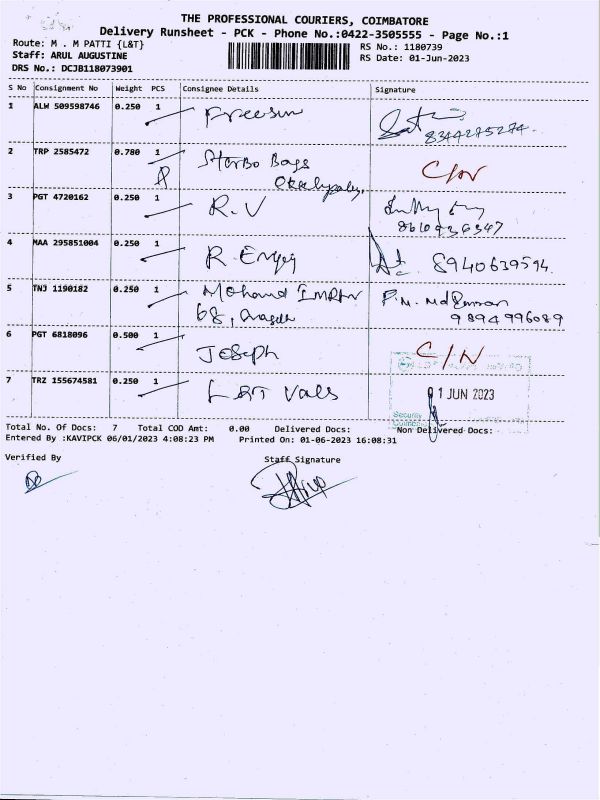 THE PROFESSIONAL COURIERS, COIMBATORE
Delivery Runsheet - PCK - Phone No.:0422-3505555 - Page No.:1
Route: M . M PATTI {L&T}
RS No.: 1180739
Staff: ARUL AUGUSTINE
RS Date: 01-Jun-2023
DRS No.: DCJB118073901
S No Consignment No Weight PCS Consignee Details Signature
1 ALW 509598746 0.250 1 Freesun
8344275274.
2 TRP 2585472 0.780 1 Bags
C/N
3 PGT 4720162 0.250 1 R.V
4 MAA 295851004 0.250 1 R.
8940639594.
5 TNJ 1190182 0.250 1 Mohamd
68, P.M.
9894996089
6 PGT 6818096 0.500 1 Joseph
C/N
7 TRZ 155674581 0.250 1 L&T Vals
01 JUN 2023
Security
Total No. Of Docs: 7 Total COD Amt: 0.00 Delivered Docs: Non Delivered Docs:
Entered By :KAVIPCK 06/01/2023 4:08:23 PM Printed On: 01-06-2023 16:08:31
Verified By Staff Signature